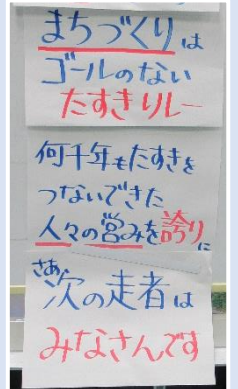 まちづくりは
ゴールのない
たすきリレー
何千年もたすきを
つないできた
人々の営みを誇りに
さあ
次の走者は
みなさんです